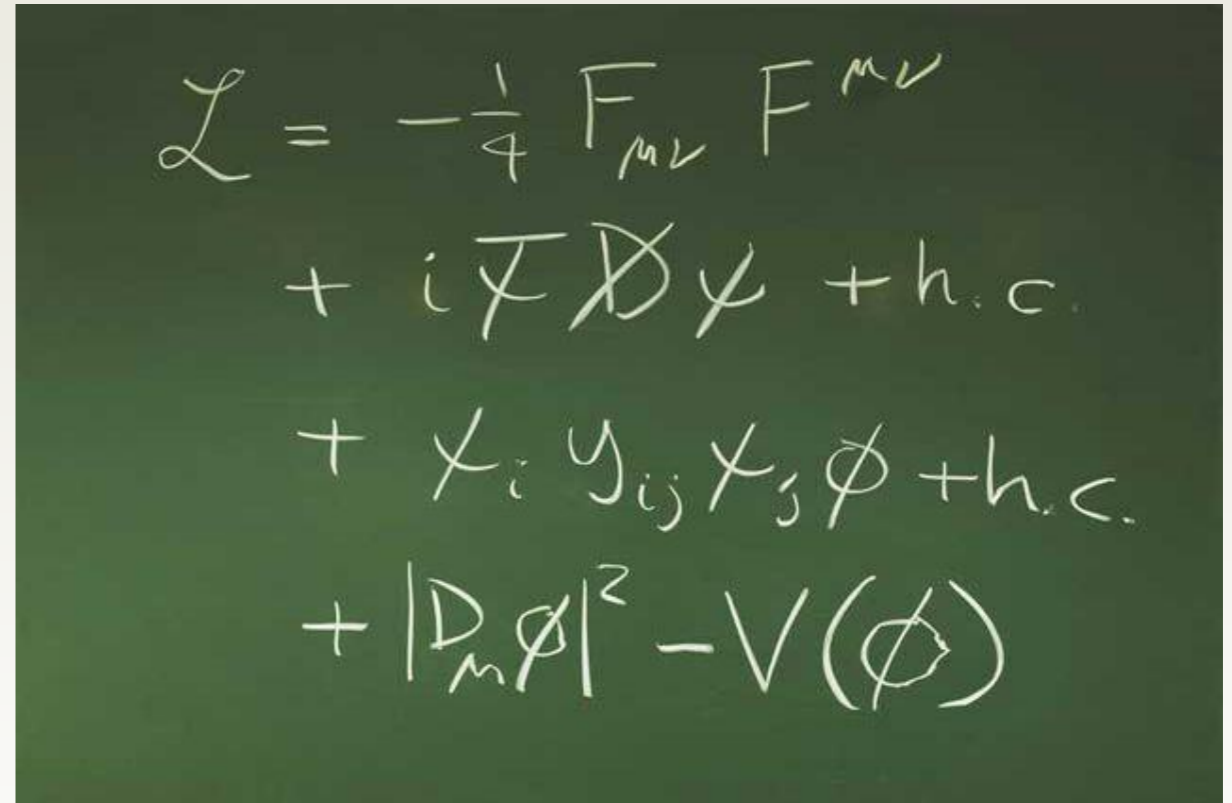 ℒ = -¼ F_{μν} F^{μν}
+ i ψ̄ D̸ ψ + h.c.
+ ψ_i y_{ij} ψ_j ϕ + h.c.
+ |D_μ ϕ|² - V(ϕ)